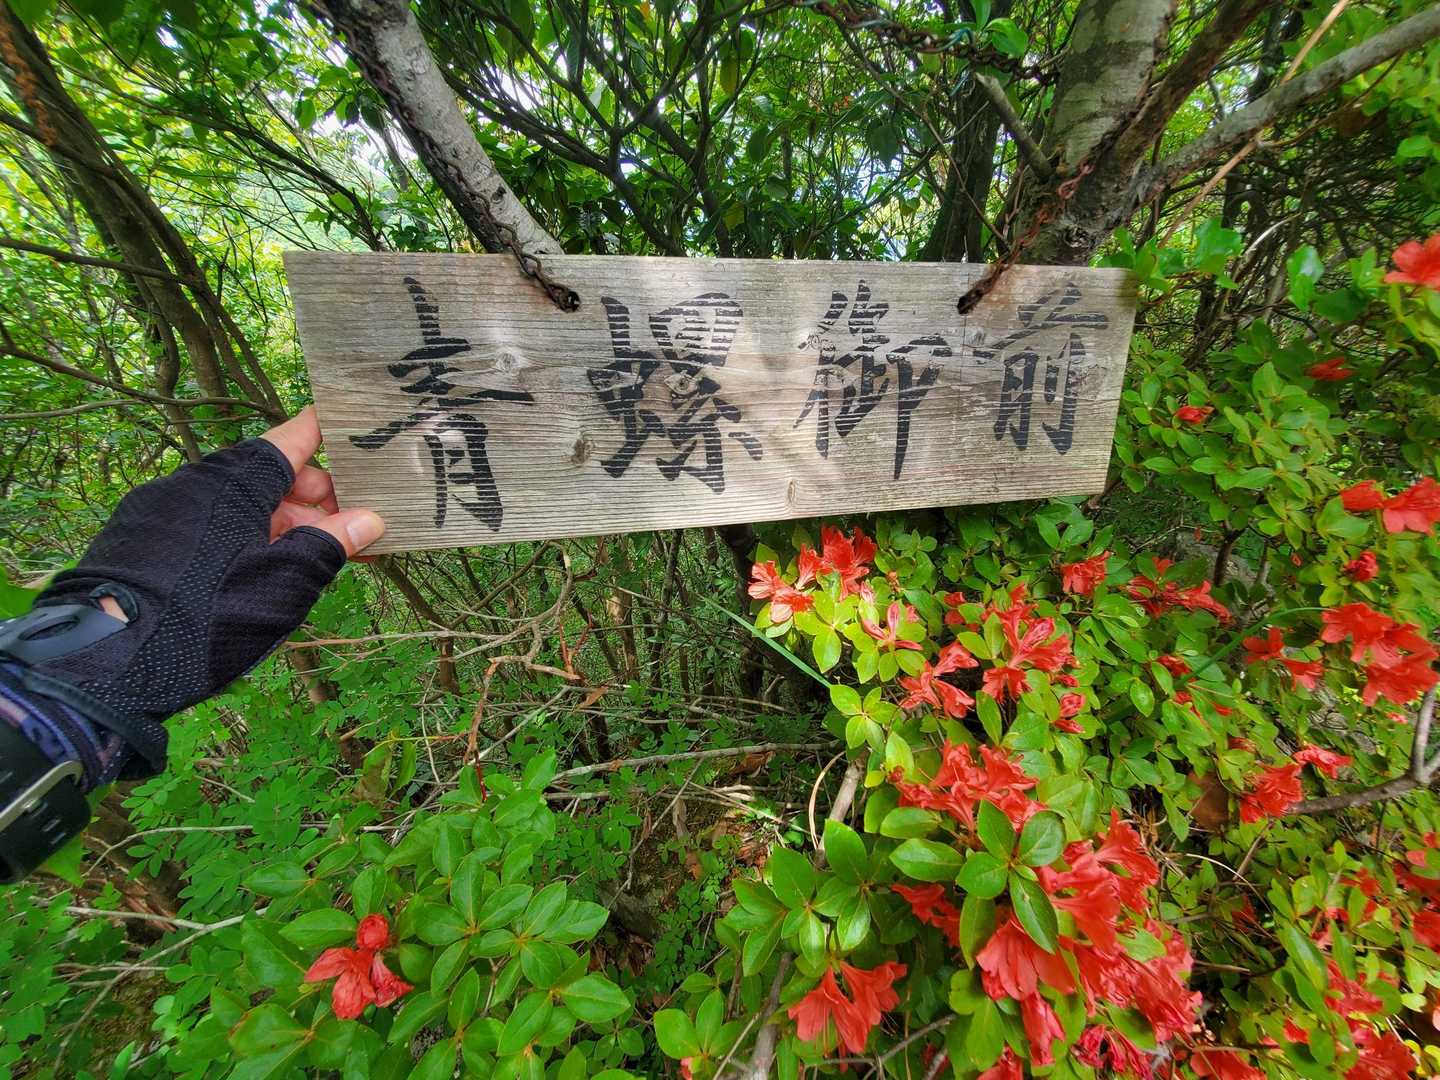 青螺御前